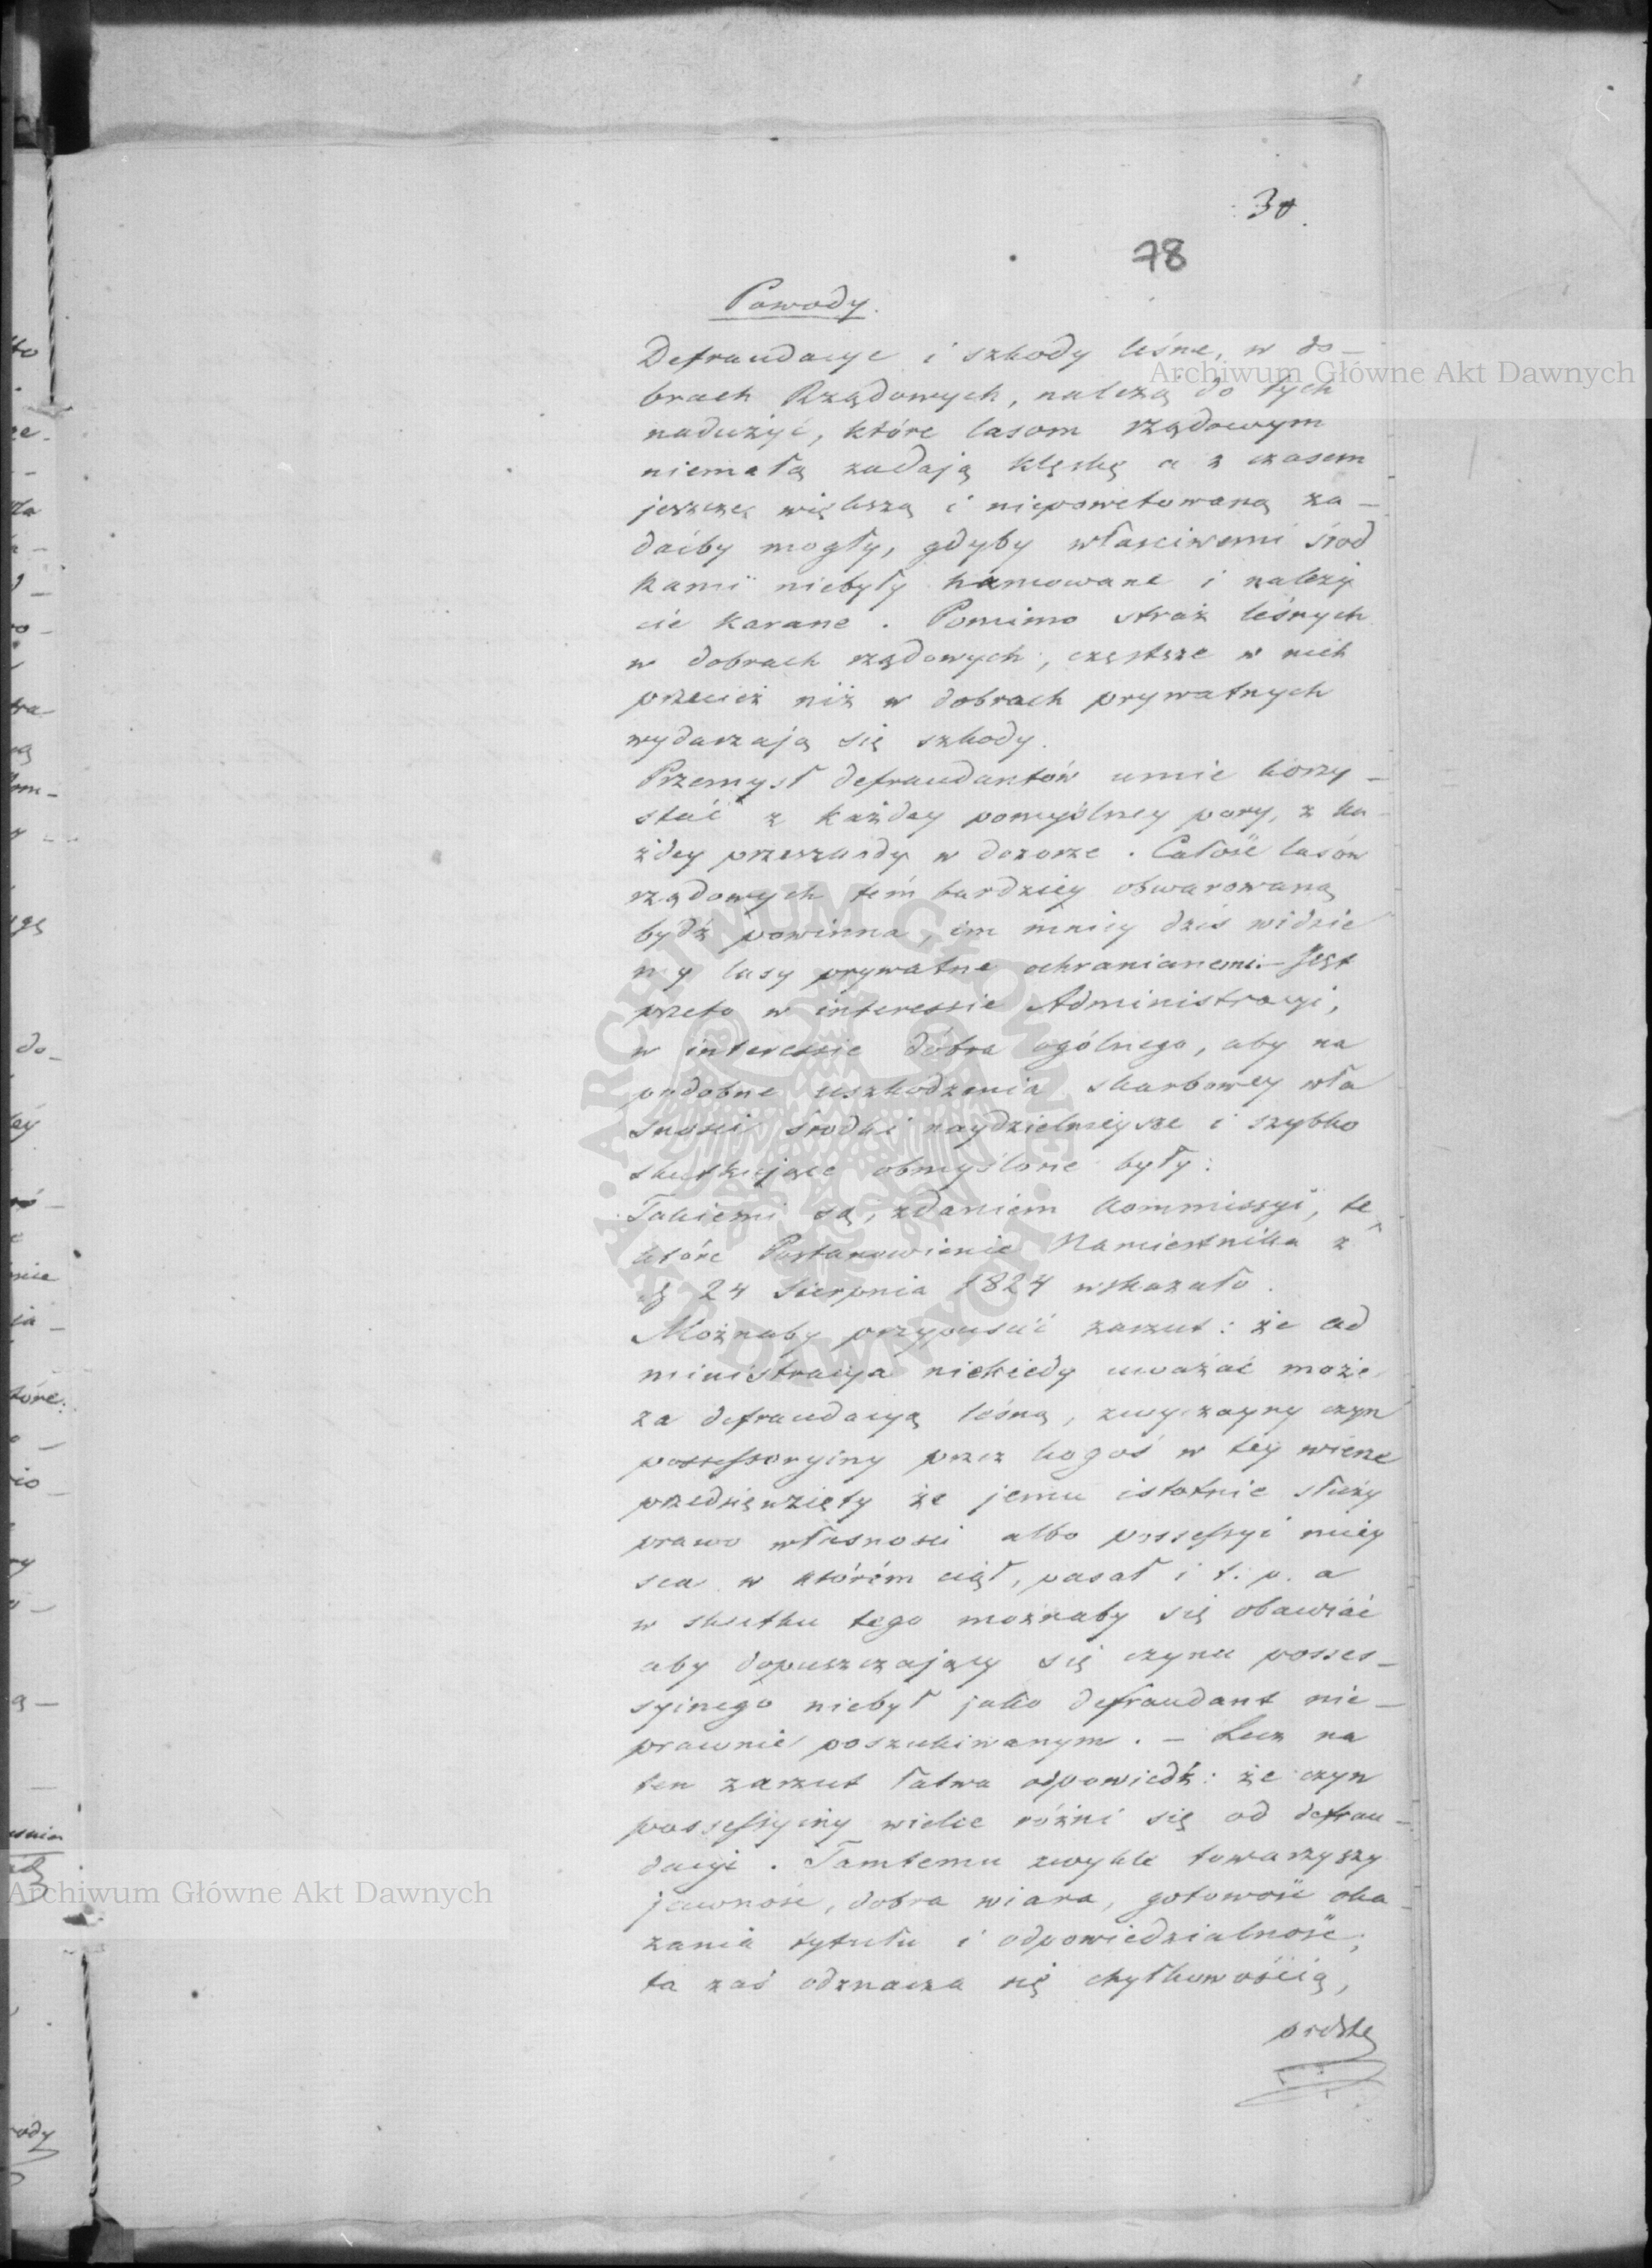 30.
78
Powody.
Defraudacye i szkody leśne, w do-
brach Rządowych, należą do tych
nadużyć, które lasom rządowym
niemałą zadają klęskę a z czasem
jeszcze większą i niepowetowaną za-
daćby mogły, gdyby właściwemi środ
kami niebyły hamowane i należy
cie karane. Pomimo straż leśnych
w dobrach rządowych, częstsze w nich
przecież niż w dobrach prywatnych
wydarzają się szkody.
Przemysł defraudantów umie korzy-
stać z każdey pomyślney pory, z ka-
żdey przeszkody w dozorze. Całość lasów
rządowych tém bardziey obwarowaną
bydź powinna, im mniey dziś widzie
my lasy prywatne ochranianemi.- Jest
przeto w interessie Administracyi,
w interessie dobra ogólnego, aby na
podobne uszkodzenia skarbowey wła
sności środki naydzielnieysze i szybko
skutkujące obmyślone były:
Takiemi są, zdaniem Kommissyi, te
które Postanowienie Namiestnika z
d 24 Sierpnia 1824 wskazało.
Możnaby przypuścić zarzut: że ad
ministracya niekiedy uważać może
za defraudacyą leśną, zwyczayny czyn
possessoryiny przez kogoś w téy wierze
przedsięwzięty że jemu istotnie służy
prawo własności albo possessyi miey
sca w którém ciął, pasał i t. p. a
w skutku tego możnaby się obawiać
aby dopuszczający się czynu posses-
syinego niebył jako defraudant nie-
prawnie poszukiwanym. - Lecz na
ten zarzut łatwa odpowiedź: że czyn
possessyiny wielce różni się od defrau-
dacyi. Tamtemu zwykle towarzyszy
jawność, dobra wiara, gotowość oka-
zania tytułu i odpowiedzialność;
ta zaś odznacza się chyłkowością,
Archiwum Główne Akt Dawnych
Archiwum Główne Akt Dawnych
ARCHIWUM GŁÓWNE AKT DAWNYCH